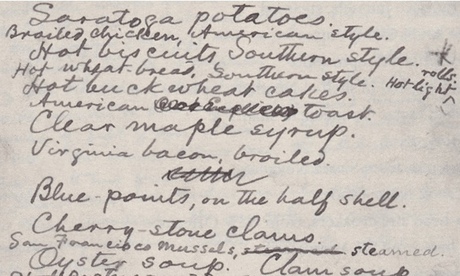 Saratoga potatoes.
Broiled chicken, American style.
Hot biscuits, Southern style.
Hot wheat-bread, Southern style. Hot light rolls.
Hot buckwheat cakes.
American toast.
Clear maple syrup.
Virginia bacon, broiled.
Blue-points, on the half shell.
Cherry-stone clams.
San Francisco mussels, steamed steamed.
Oyster soup. Clam soup.